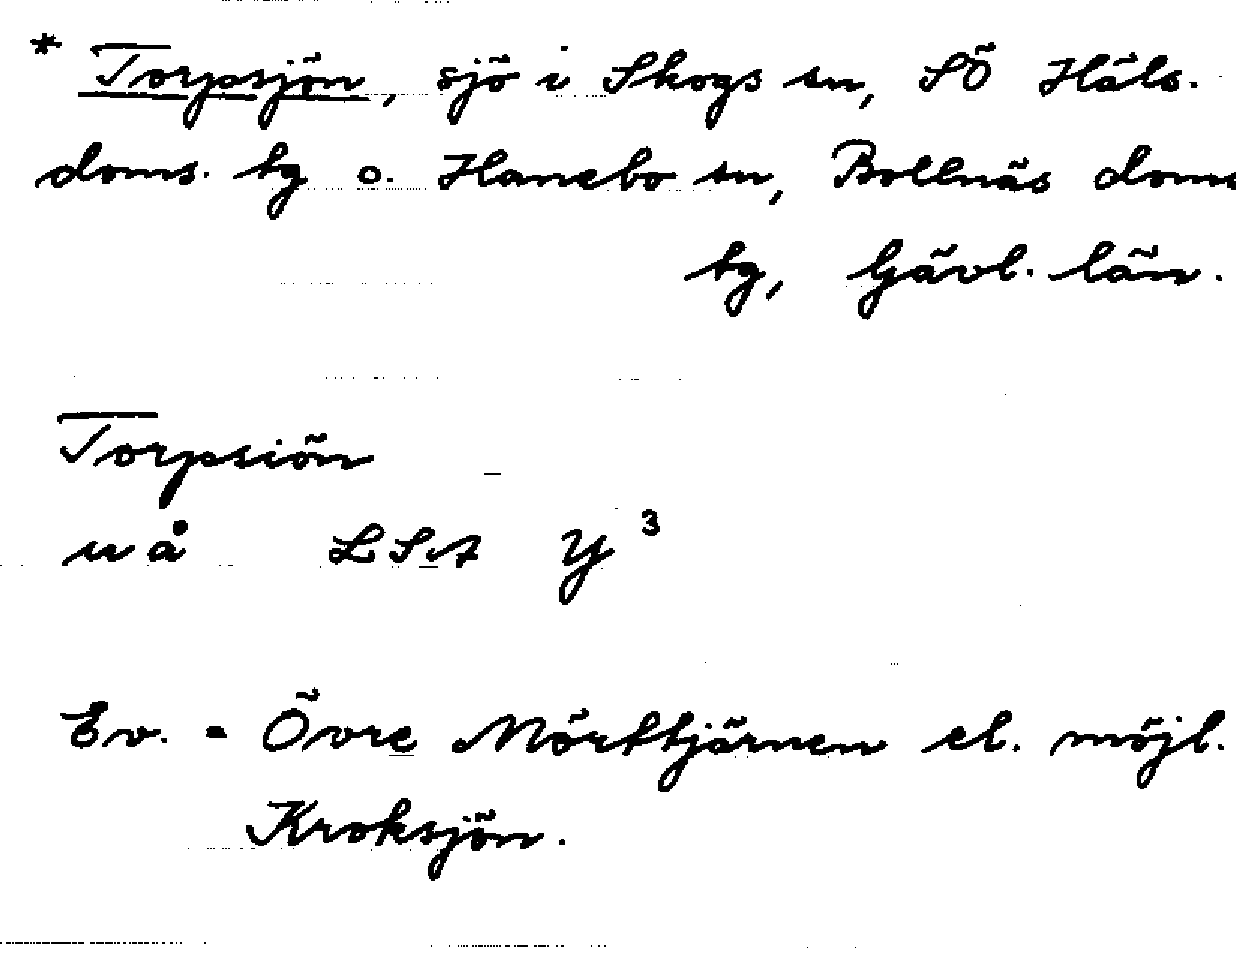 * Torpsjön, sjö i Skogs sn, SÖ Häls.
doms. tg o. Hanebo sn, Bollnäs doms
tg, Gävl. län.
Torpsiön
uå LSA Y 3
Ev. = Övre Mörttjärnen el. möjl.
Kroksjön.